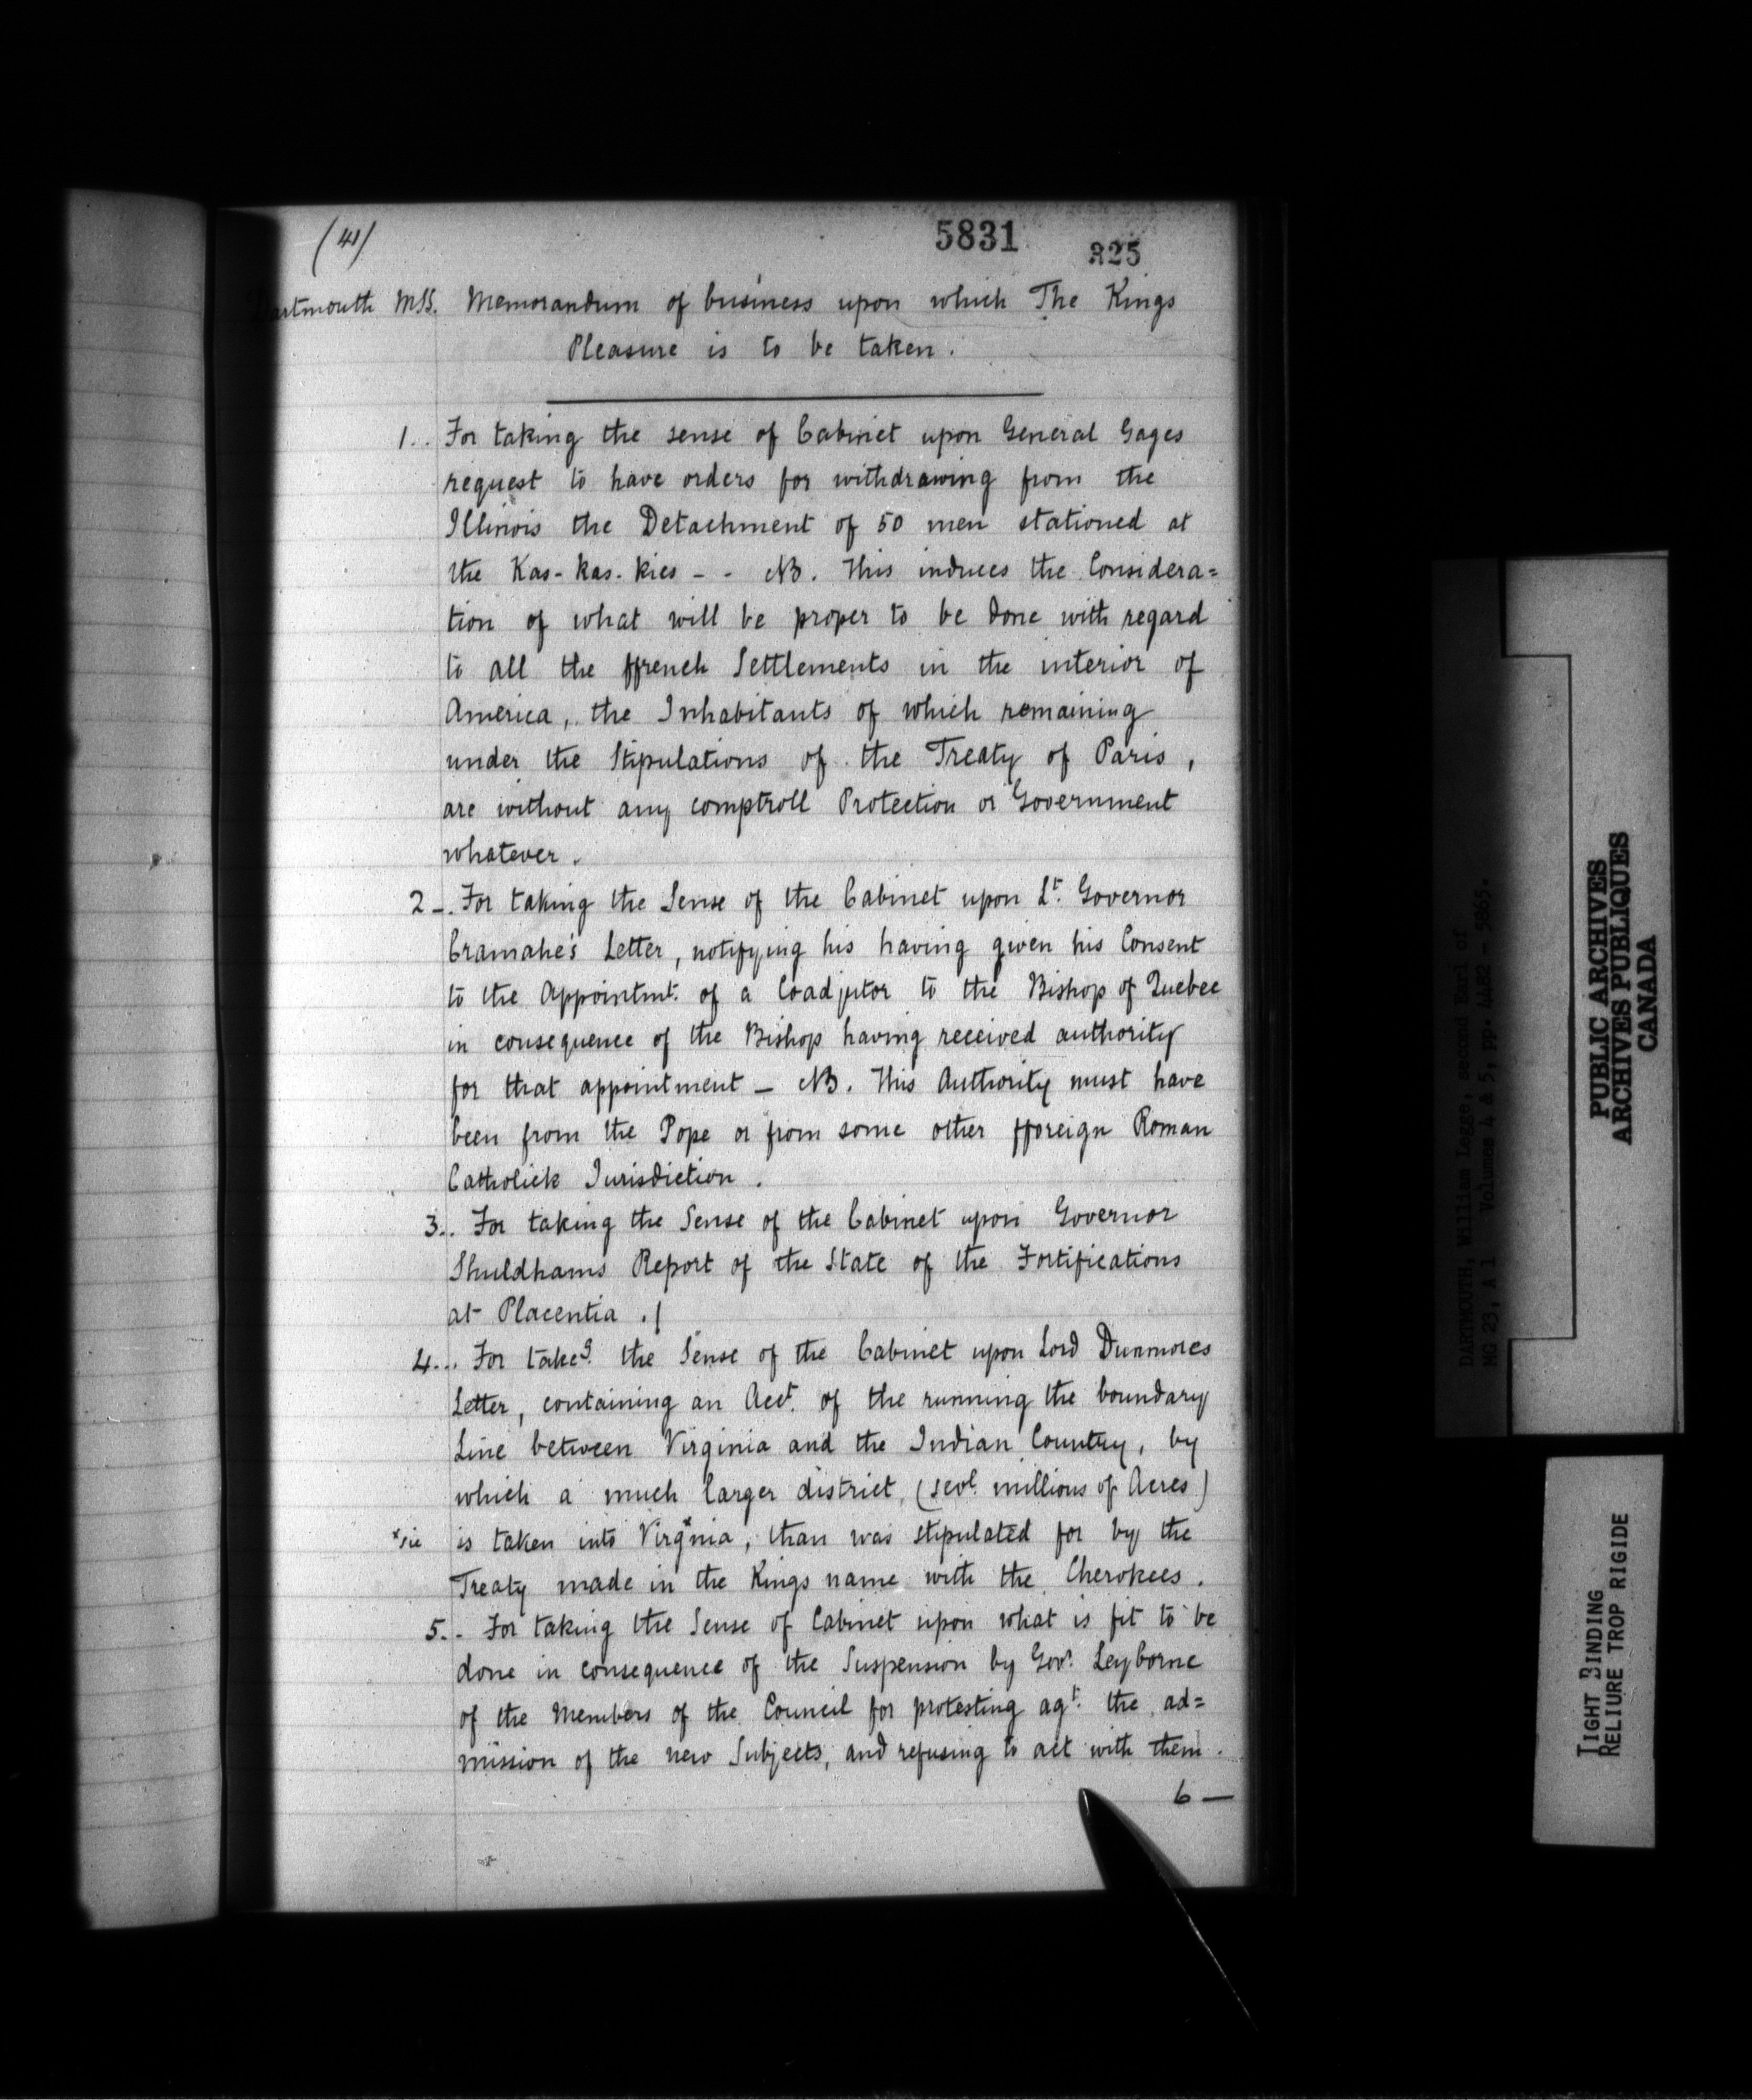 (41)
5831
325
Dartmouth MSS. Memorandum of business upon which The Kings
Pleasure is to be taken.
1.. For taking the sense of Cabinet upon General Gages
request to have orders for withdrawing from the
Illinois the Detachment of 50 men stationed at
the Kas-kas-kies - - NB. This induces the Considera=
tion of what will be proper to be done with regard
to all the ffrench Settlements in the interior of
America, the Inhabitants of which remaining
under the Stipulations of the Treaty of Paris,
are without any comptroll Protection or Government
whatever.
2-. For taking the Sense of the Cabinet upon Lt. Governor
Cramahe's Letter, notifying his having given his Consent
to the Appointmt. of a Coadjutor to the Bishop of Quebec
in consequence of the Bishop having received authority
for that appointment - NB. This Authority must have
been from the Pope or from some other fforeign Roman
Catholick Jurisdiction.
3.. For taking the Sense of the Cabinet upon Governor
Shuldhams Report of the State of the Fortifications
at Placentia ./
4... For takeg. the Sense of the Cabinet upon Lord Dunmores
Letter, containing an Acct. of the running the boundary
Line between Virginia and the Indian Country, by
which a much larger district, (sevl. millions of Acres)
*sic is taken into Virg*nia, than was stipulated for by the
Treaty made in the Kings name with the Cherokees.
5.- For taking the Sense of Cabinet upon what is fit to be
done in consequence of the Suspension by Govr. Leyborne
of the Members of the Council for protesting agt. the ad=
mission of the new Subjects, and refusing to act with them.
6 —
DARTMOUTH, William Legge, second Earl of
MG 23, A 1 Volumes 4 & 5, pp. 4482 - 5865.
PUBLIC ARCHIVES
ARCHIVES PUBLIQUES
CANADA
TIGHT BINDING
RELIURE TROP RIGIDE